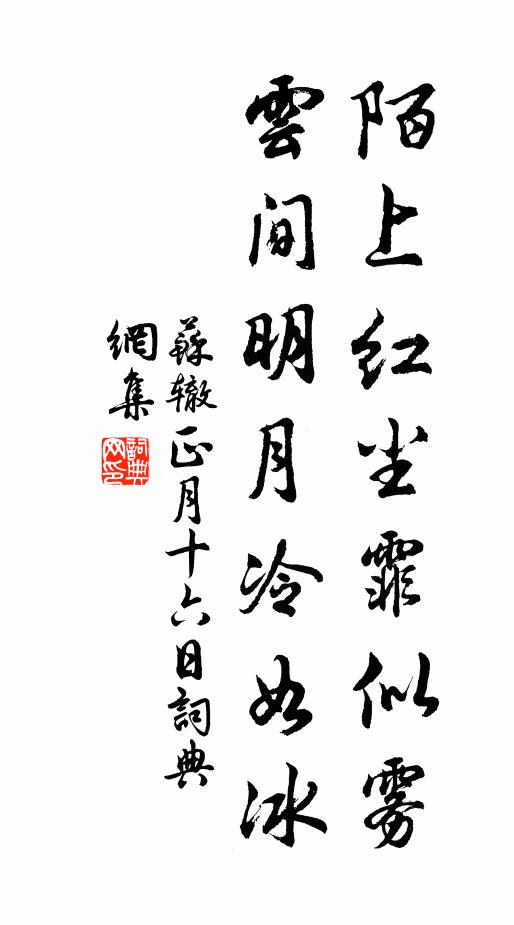 陌上红尘霏似雾
雲间明月冷如冰
蘇辙正月十六日詞典
網集
詞典网印